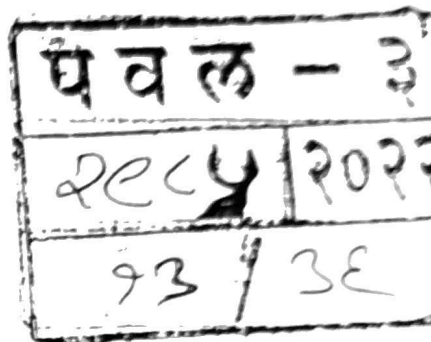 पवल - ३
२९८५ २०२२
१३ / ३६